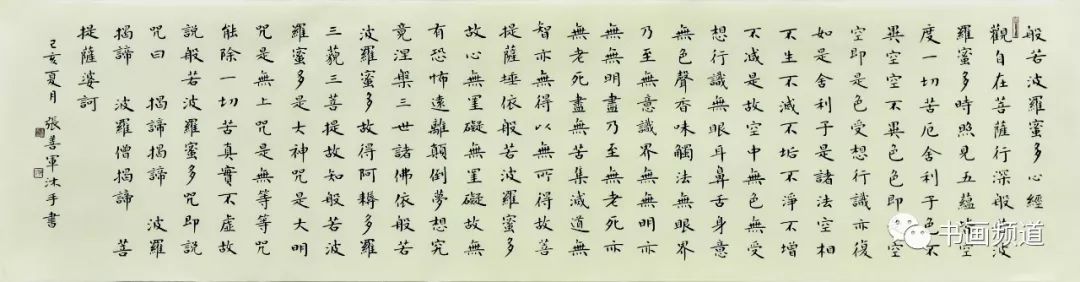 般若波羅蜜多心經
觀自在菩薩行深般若波
羅蜜多時照見五蘊皆空
度一切苦厄舍利子色不
異空空不異色色即是空
空即是色受想行識亦復
如是舍利子是諸法空相
不生不滅不垢不淨不增
不減是故空中無色無受
想行識無眼耳鼻舌身意
無色聲香味觸法無眼界
乃至無意識界無無明亦
無無明盡乃至無老死亦
無老死盡無苦集滅道無
智亦無得以無所得故菩
提薩埵依般若波羅蜜多
故心無罣礙無罣礙故無
有恐怖遠離顛倒夢想究
竟涅槃三世諸佛依般若
波羅蜜多故得阿耨多羅
三藐三菩提故知般若波
羅蜜多是大神咒是大明
咒是無上咒是無等等咒
能除一切苦真實不虛故
說般若波羅蜜多咒即說
咒曰 揭諦揭諦 波羅
揭諦 波羅僧揭諦 菩
提薩婆訶
己亥夏月 張善軍沐手書
书画频道